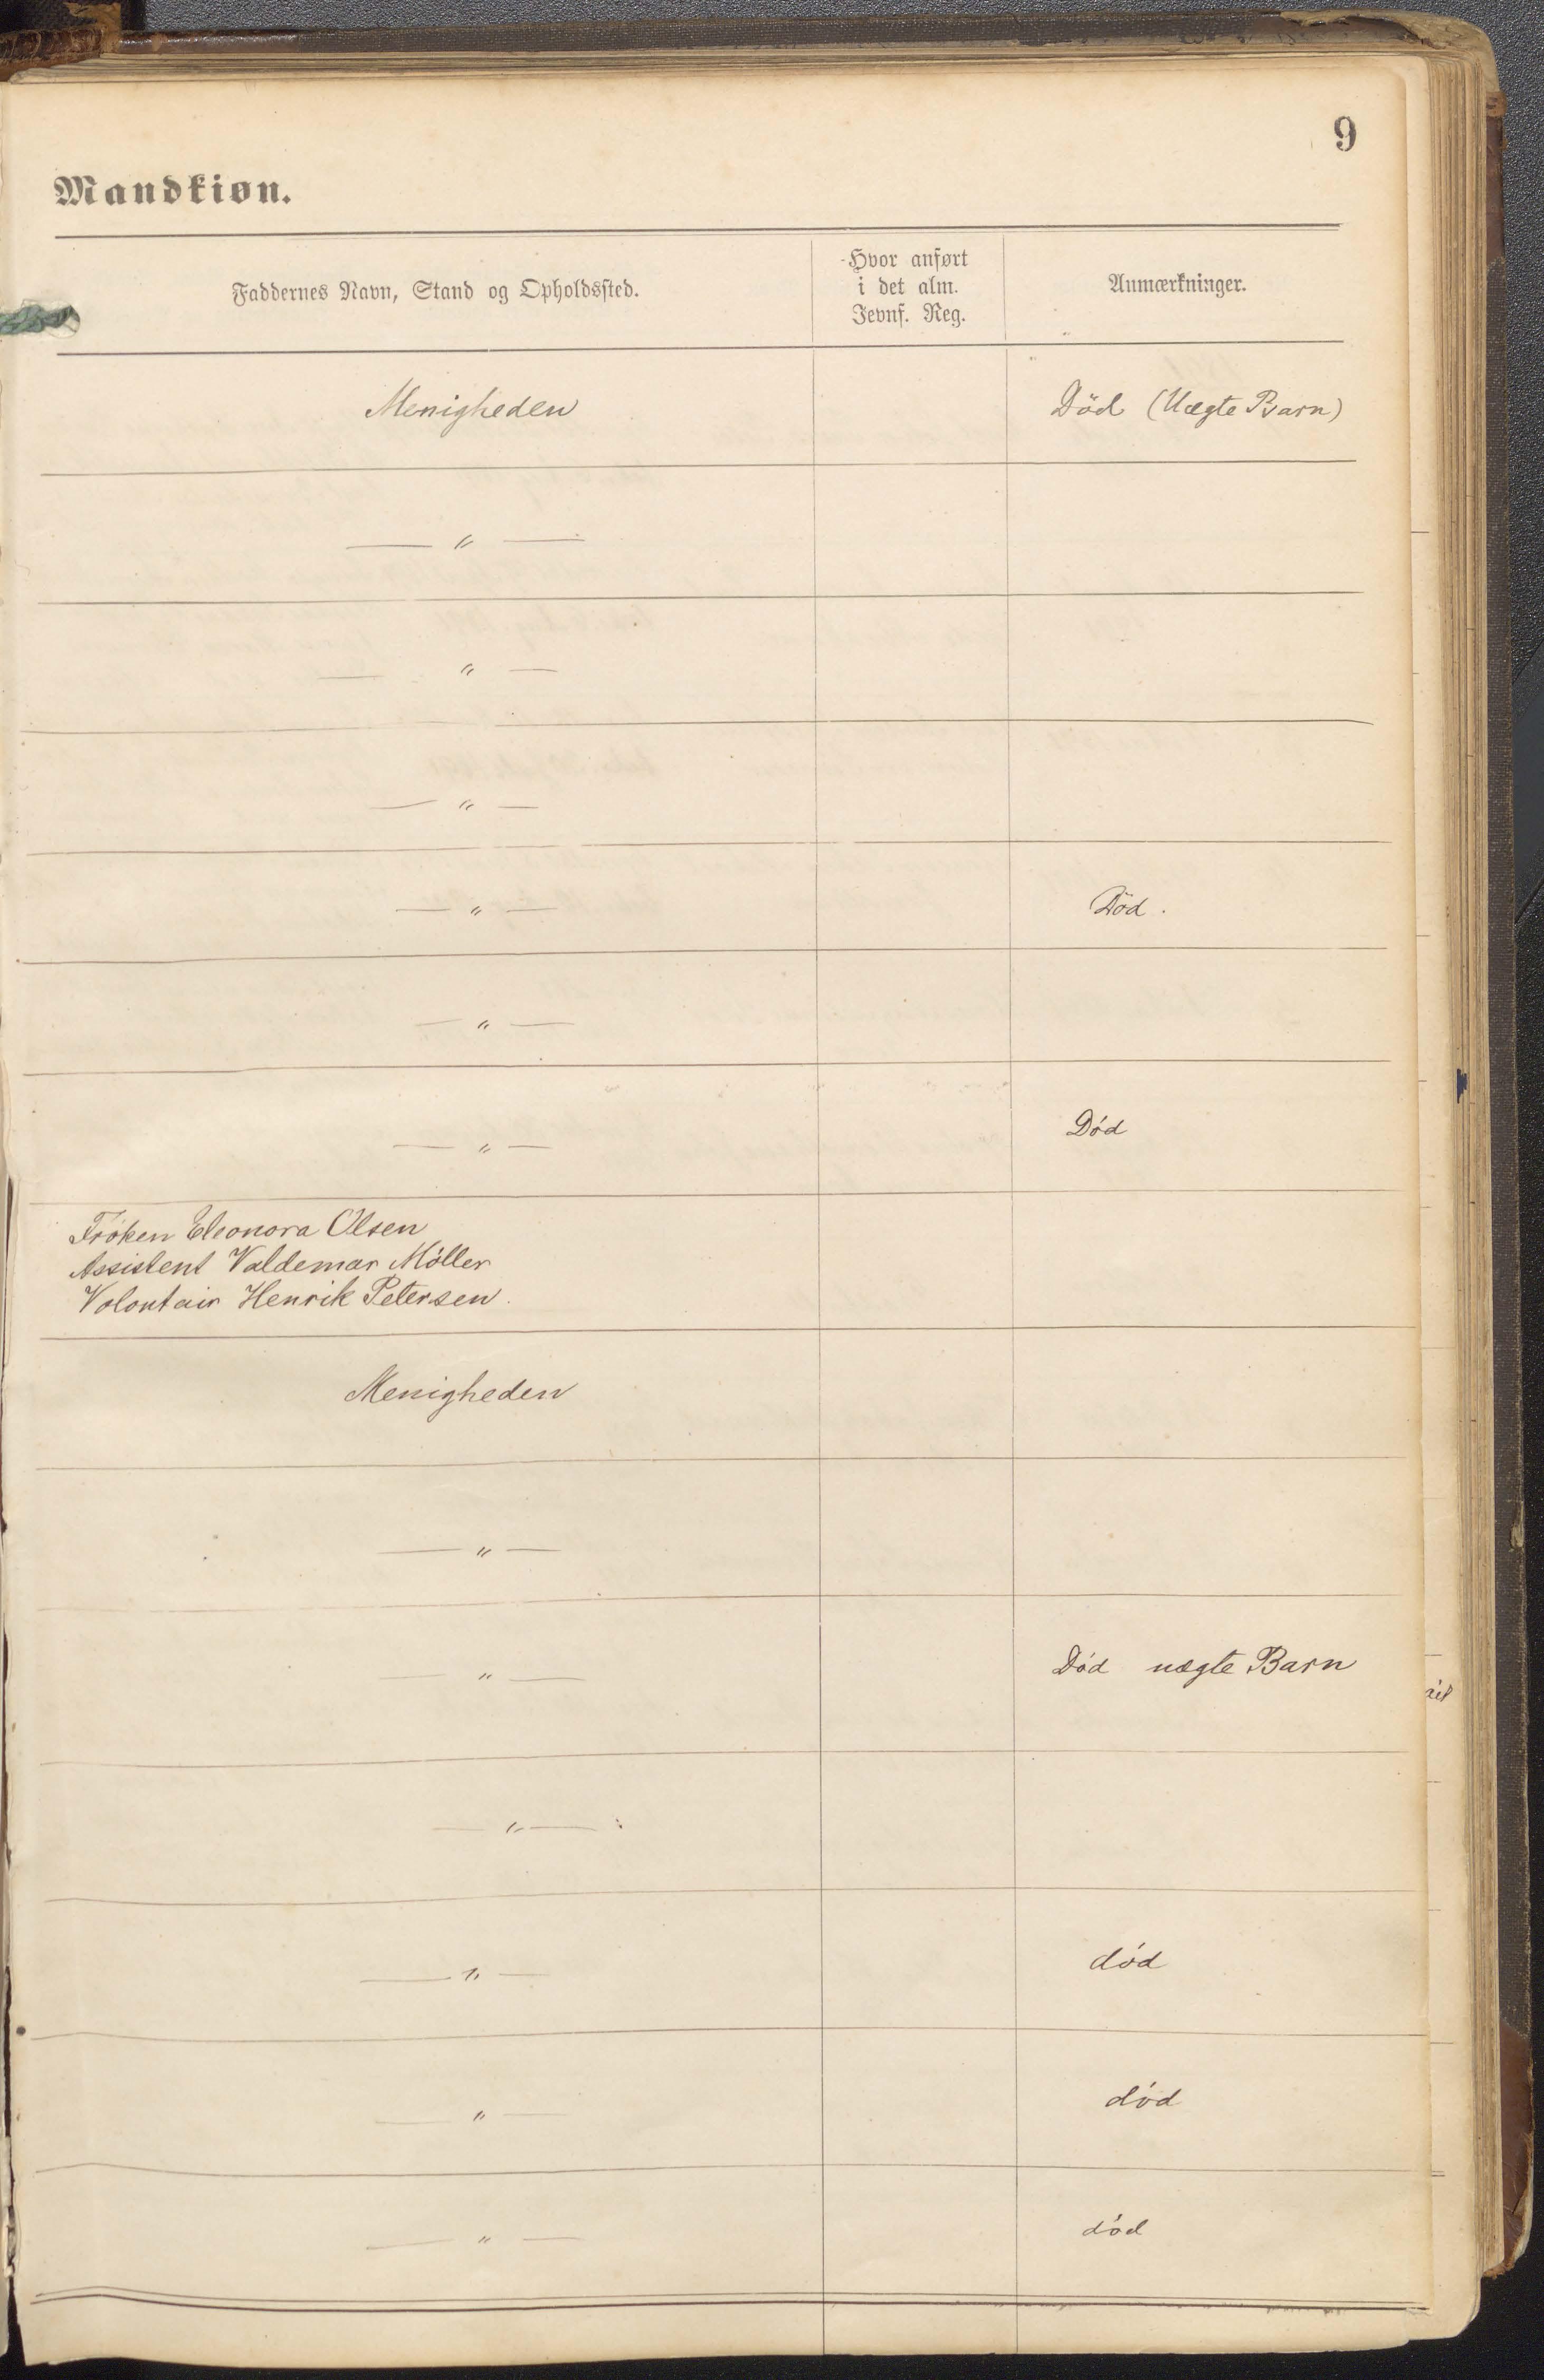 9
Mandkiøn.
Faddernes Navn, Stand og Opholdssted.
Hvor anført
i det alm.
Jevnf. Reg.
Anmærkninger.
Menigheden
Död (Uægte Barn)
— " —
— " —
— " —
— " —
Död.
— " —
— " —
Död
Fröken Eleonora Olsen
Assistent Valdemar Möller
Volontair Henrik Petersen.
Menigheden
— " —
— " —
Död uægte Barn
— " —
— " —
död
— " —
död
— " —
död